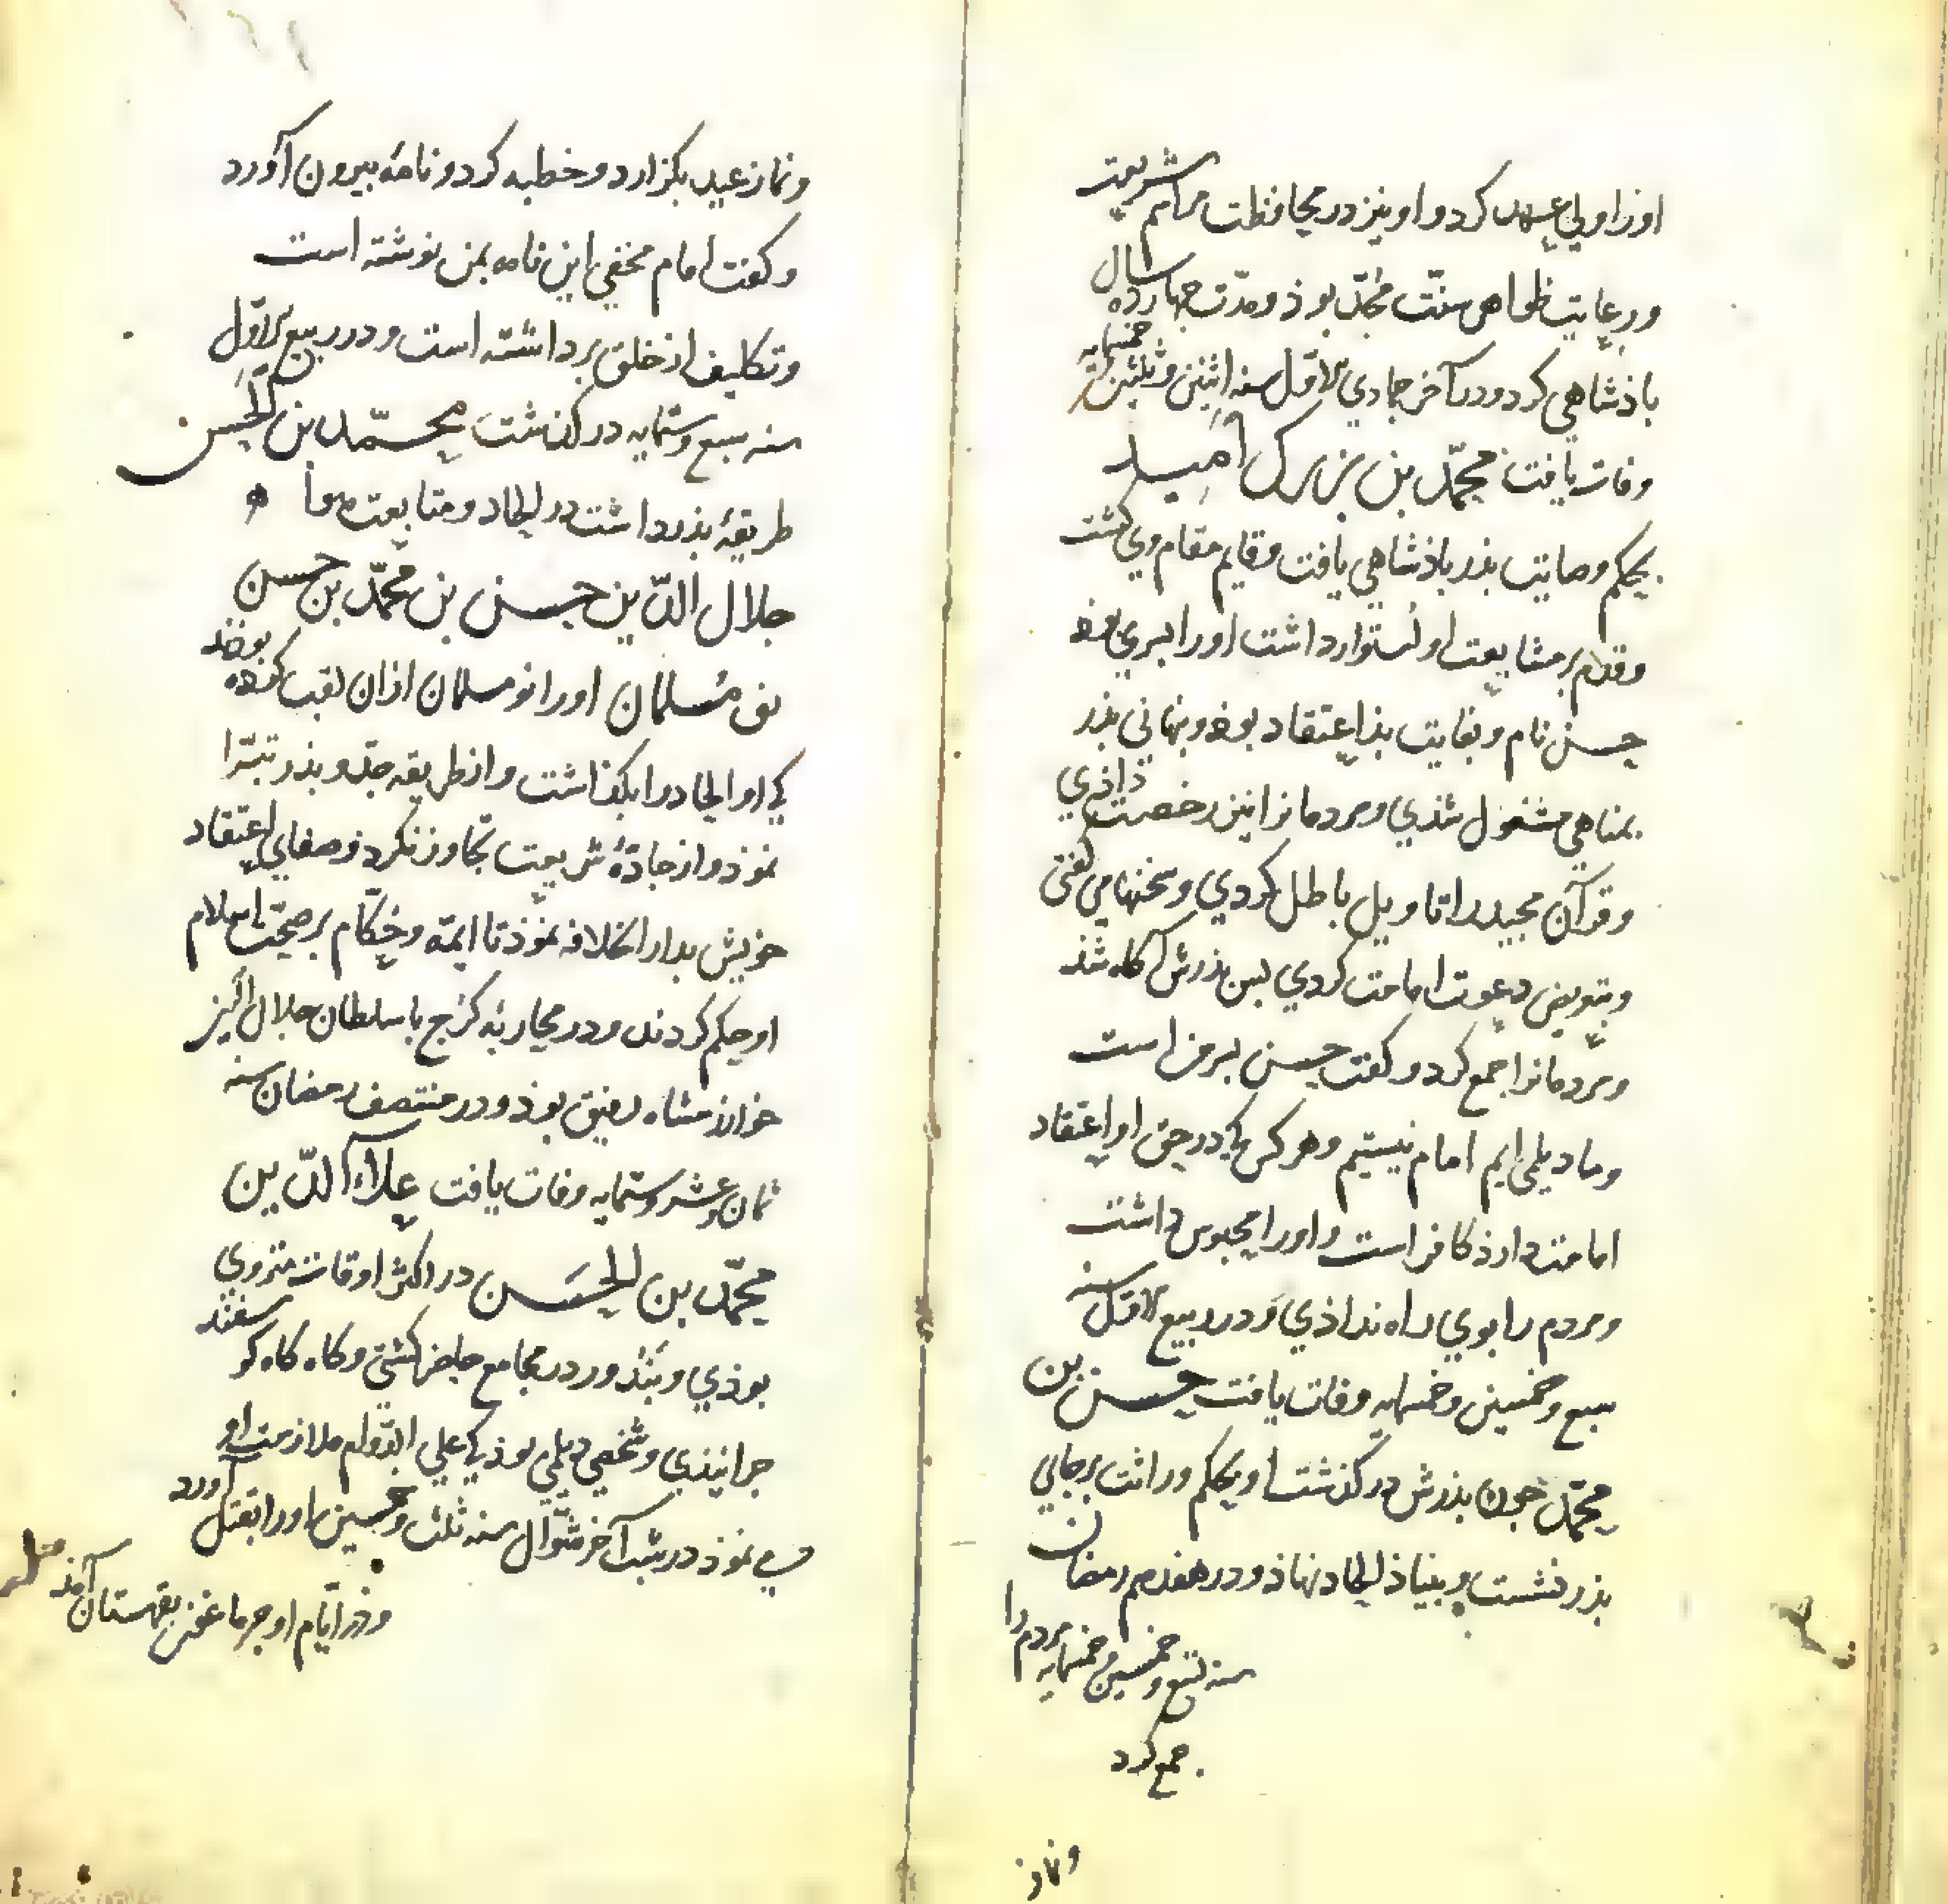 او را ولي عهد كرد و او نيز در محافظت مراسم شريعت
و رعايت ظواهر سنت مجدّ بوذ و مدّت چهارده سال
باذشاهي كرد و در آخر جمادي الاول سنه اثنين و ثلثين و خمسمايه
وفات يافت محمّد بن بزرك اميد
بحكم وصايت بذر باذشاهي يافت و قايم مقام وي كشت
و قدم بر متابعت او استوار داشت او را بسري بوذ
حسن نام و بغايت بذاعتقاد بوذ و بنهاني بذر
بمناهي مشغول شذي و مردمانرا نيز رخصت داذي
و قرآن مجيد را تاويل باطل كردي و سخنها مي كفتي
و بتعويض دعوت امامت كردي بس بذرش آكاه شذ
و مردمانرا جمع كرد و كفت حسن بسر من است
و ما ديلمي ايم امام نيستيم و هر كس كي در حق او اعتقاد
امامت دارذ كافر است و او را محبوس داشت
و مردم را بوي راه نداذي و در ربيع الاول سنه
سبع و خمسين و خمسمايه وفات يافت حسن بن
محمّد جون بذرش در كذشت او بحكم وراثت بر جاي
بذر نشست و بنياذ الحاد نهاذ و در هفدهم رمضان
سنه تسع و خمسين و خمسمايه مردم را
جمع كرد
و نماز
و نماز عيد بكزارد و خطبه كرد و نامه بيرون آورد
و كفت امام مخفي اين نامه بمن نوشته است
و تكليف از خلق برداشته است و در ربيع الاول
سنه سبع و ستمايه در كذشت محمّد بن الحسن
طريقه بذر داشت در الحاد و متابعت هوا
جلال الدّين حسن بن محمّد بن حسن
نو مسلمان او را نو مسلمان ازان لقب كرده بوذند
كي او الحاد را بكذاشت و از طريقه جدّ و بذر تبرّا
نموذ و از جادّه شريعت تجاوز نكرد و صفاي اعتقاد
خويش بدار الخلافه نموذ تا ايمه و حكّام بر صحّت اسلام
او حكم كردند و در محاربه كرج با سلطان جلال الدين
خوارزمشاه رفيق بوذ و در منتصف رمضان سنه
ثمان و عشر و ستمايه وفات يافت علاء الدّين
محمّد بن الحسن در اكثر اوقات منزوي
بوذي و بنذور در مجامع حاضر كشتي و كاه كاه كوسفند
جرانيذي و شخصي ديلمي بوذ كي علي الدّوام ملازمت او
مي نموذ در شب آخر شوّال سنه ثلث و خمسين او را بقتل آورد
و در ايّام او جرماغون بقهستان آمذ